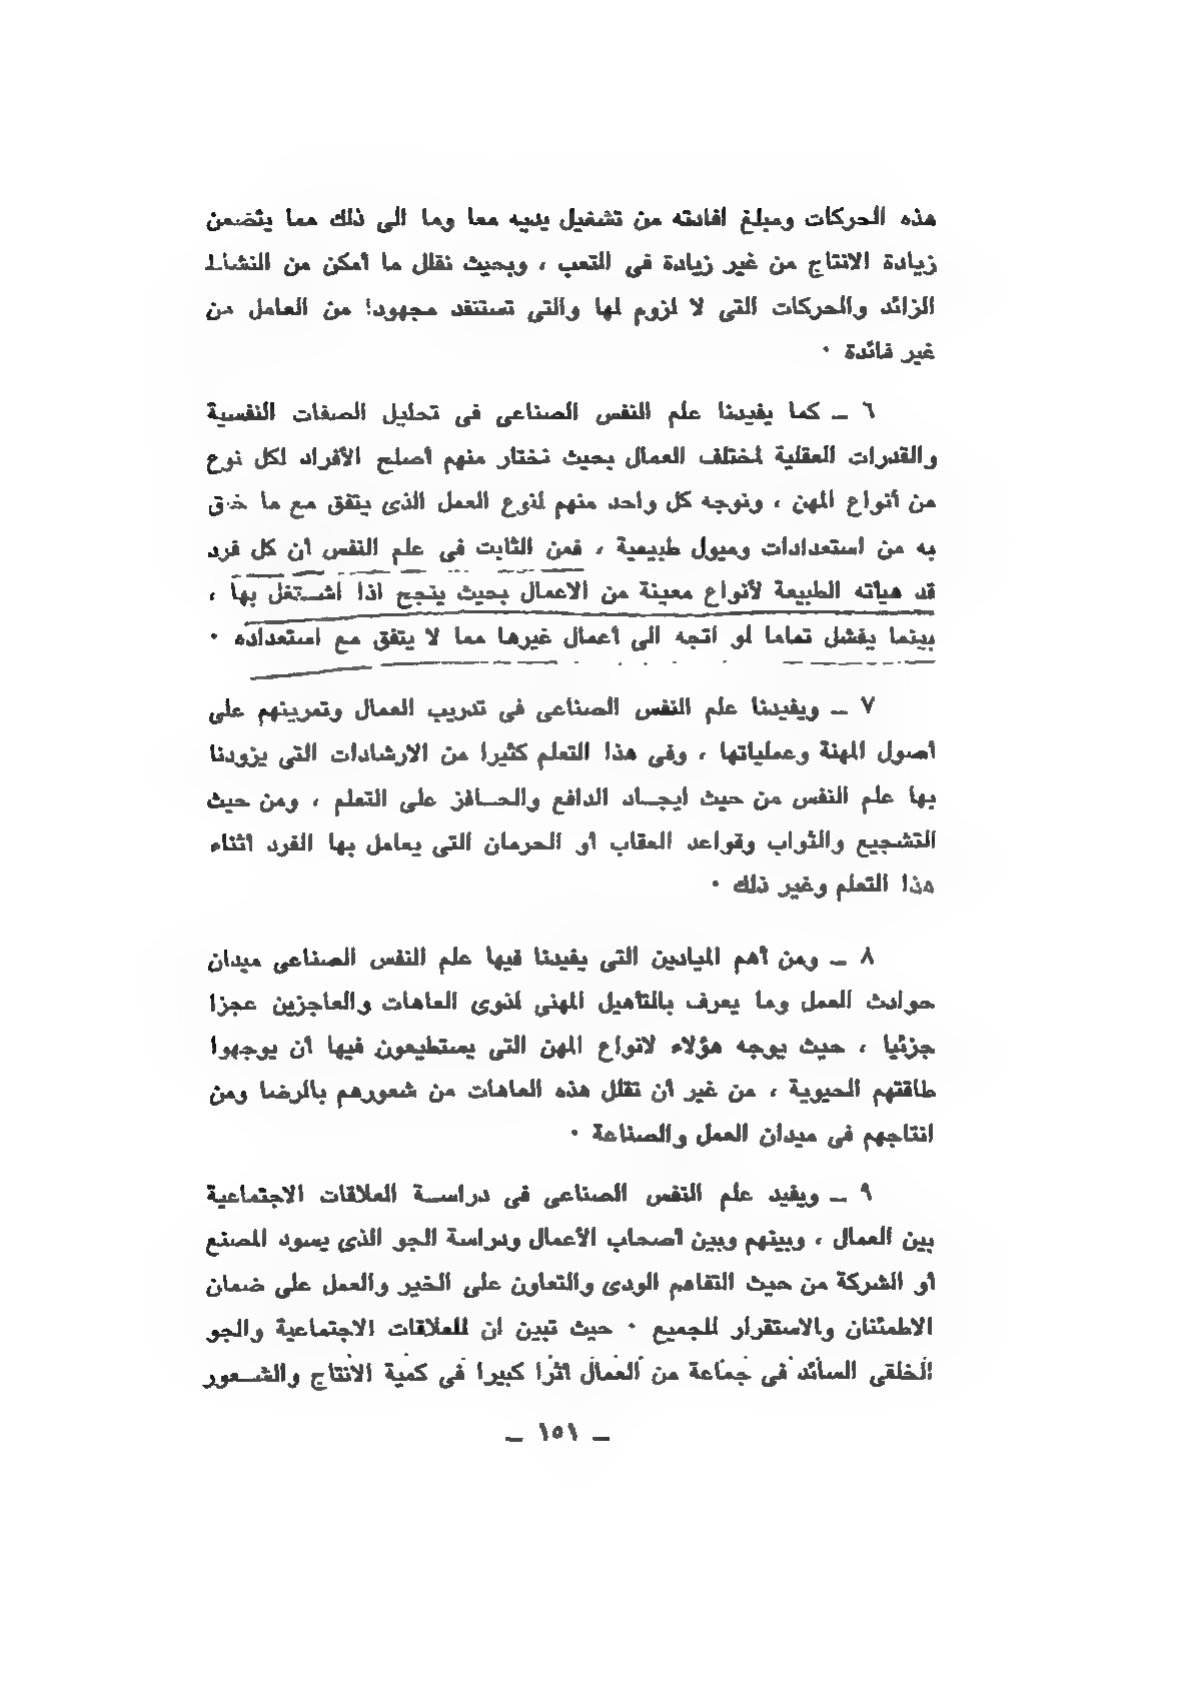 هذه الحركات ومبلغ افادته من تشغيل يديه معا وما الى ذلك مما يتضمن
زيادة الانتاج من غير زيادة فى التعب ، وبحيث نقلل ما أمكن من النشاط
الزائد والحركات التى لا لزوم لها والتى تستنفد مجهودا من العامل من
غير فائدة ٠
٦ ــ كما يفيدنا علم النفس الصناعى فى تحليل الصفات النفسية
والقدرات العقلية لمختلف العمال بحيث نختار منهم أصلح الأفراد لكل نوع
من أنواع المهن ، ونوجه كل واحد منهم لنوع العمل الذى يتفق مع ما خلق
به من استعدادات وميول طبيعية ، فمن الثابت فى علم النفس أن كل فرد
قد هيأته الطبيعة لأنواع معينة من الاعمال بحيث ينجح اذا اشــتغل بها ،
بينما يفشل تماما لو اتجه الى أعمال غيرها مما لا يتفق مع استعداده ٠
٧ ــ ويفيدنا علم النفس الصناعى فى تدريب العمال وتمرينهم على
أصول المهنة وعملياتها ، وفى هذا التعلم كثيرا من الارشادات التى يزودنا
بها علم النفس من حيث ايجــاد الدافع والحــافز على التعلم ، ومن حيث
التشجيع والثواب وقواعد العقاب أو الحرمان التى يعامل بها الفرد أثناء
هذا التعلم وغير ذلك ٠
٨ ــ ومن أهم الميادين التى يفيدنا فيها علم النفس الصناعى ميدان
حوادث العمل وما يعرف بالتأهيل المهنى لذوى العاهات والعاجزين عجزا
جزئيا ، حيث يوجه هؤلاء لانواع المهن التى يستطيعون فيها أن يوجهوا
طاقتهم الحيوية ، من غير أن تقلل هذه العاهات من شعورهم بالرضا ومن
انتاجهم فى ميدان العمل والصناعة ٠
٩ ــ ويفيد علم النفس الصناعى فى دراســة العلاقات الاجتماعية
بين العمال ، وبينهم وبين أصحاب الأعمال ودراسة الجو الذى يسود المصنع
أو الشركة من حيث التفاهم الودى والتعاون على الخير والعمل على ضمان
الاطمئنان والاستقرار للجميع ٠ حيث تبين ان للعلاقات الاجتماعية والجو
الخلقى السائد فى جماعة من العمال أثرا كبيرا فى كمية الانتاج والشــعور
ــ ١٥١ ــ